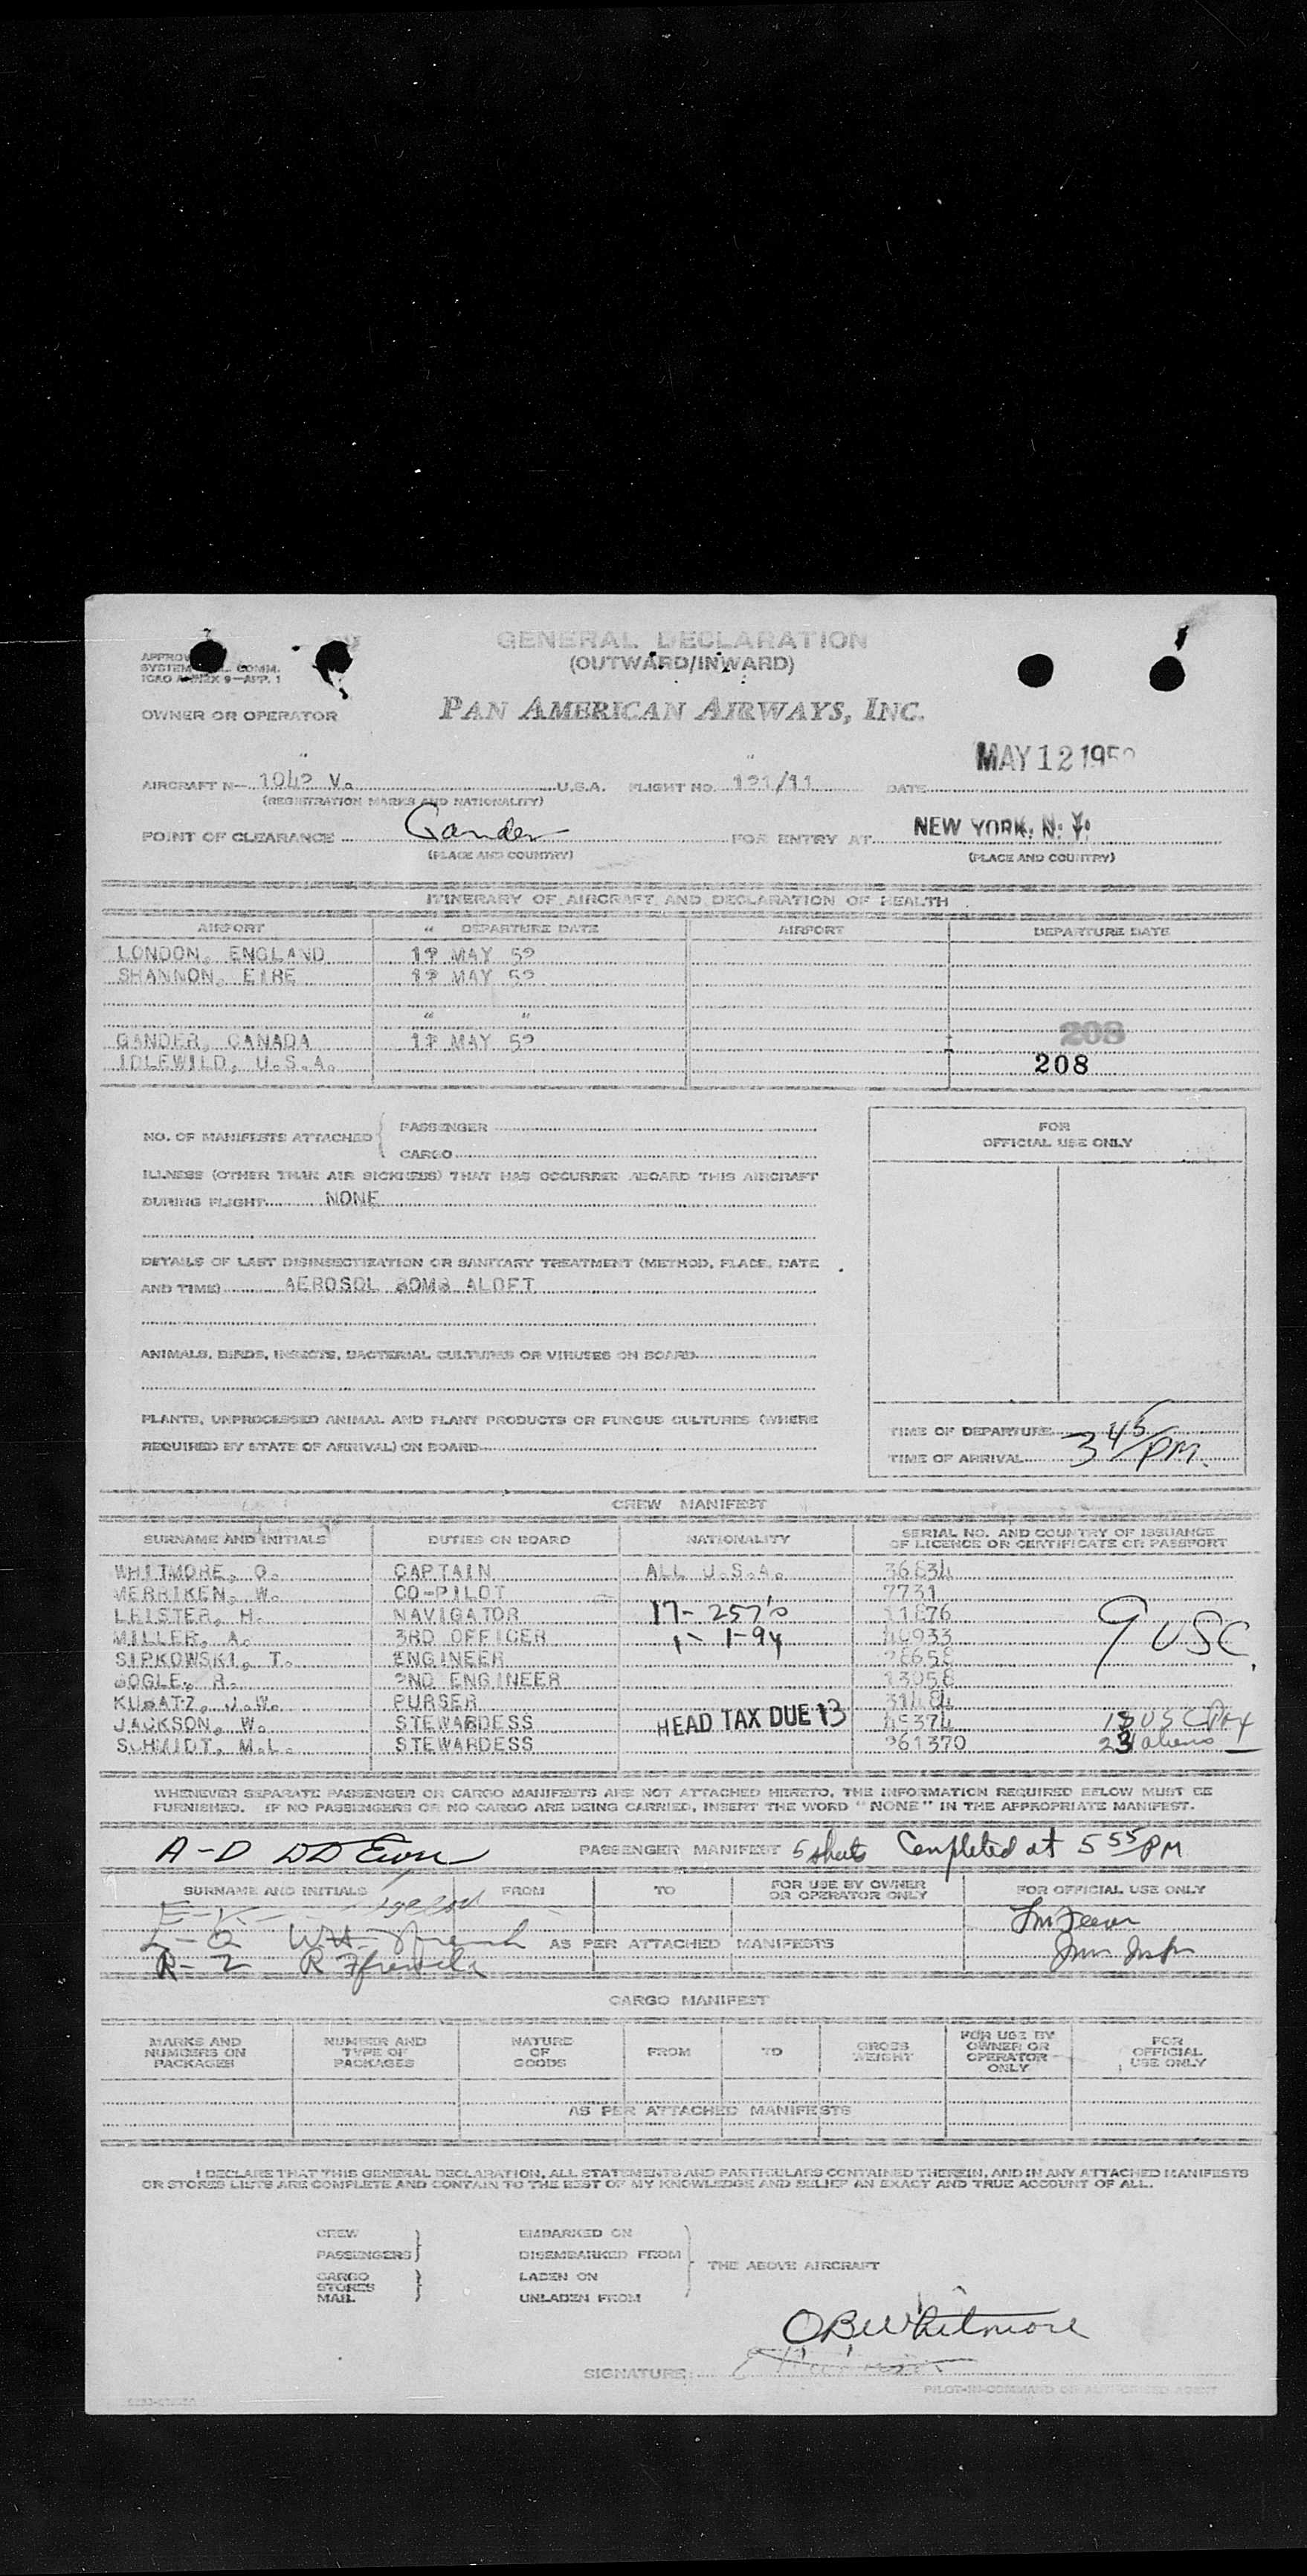 GENERAL DECLARATION
(OUTWARD/INWARD)
ICAO ANNEX 9—APP. 1
OWNER OR OPERATOR PAN AMERICAN AIRWAYS, INC.
MAY 12 195
AIRCRAFT N— 1042 V. U.S.A. FLIGHT NO. 121/11 DATE
(REGISTRATION MARKS AND NATIONALITY)
POINT OF CLEARANCE Gander FOR ENTRY AT NEW YORK, N. Y.
(PLACE AND COUNTRY) (PLACE AND COUNTRY)
ITINERARY OF AIRCRAFT AND DECLARATION OF HEALTH
AIRPORT DEPARTURE DATE AIRPORT DEPARTURE DATE
LONDON, ENGLAND MAY 52
SHANNON, EIRE MAY 52
GANDER, CANADA MAY 52 208
IDLEWILD, U.S.A. 208
NO. OF MANIFESTS ATTACHED { PASSENGER
CARGO
FOR
OFFICIAL USE ONLY
ILLNESS (OTHER THAN AIR SICKNESS) THAT HAS OCCURRED ABOARD THIS AIRCRAFT
DURING FLIGHT NONE
DETAILS OF LAST DISINSECTIZATION OR SANITARY TREATMENT (METHOD, PLACE, DATE
AND TIME) AEROSOL BOMB ALOFT
ANIMALS, BIRDS, INSECTS, BACTERIAL CULTURES OR VIRUSES ON BOARD
PLANTS, UNPROCESSED ANIMAL AND PLANT PRODUCTS OR FUNGUS CULTURES (WHERE
REQUIRED BY STATE OF ARRIVAL) ON BOARD
TIME OF DEPARTURE
TIME OF ARRIVAL 3 45/PM.
CREW MANIFEST
SURNAME AND INITIALS DUTIES ON BOARD NATIONALITY SERIAL NO. AND COUNTRY OF ISSUANCE
OF LICENCE OR CERTIFICATE OR PASSPORT
WHITMORE, O. CAPTAIN ALL U.S.A. 36834
MERRIKEN, W. CO-PILOT 7731
LEISTER, H. NAVIGATOR 17- 257's 11876
MILLER, A. 3RD OFFICER 1- 1-94 40933 9 USC.
SIPKOWSKI, T. ENGINEER
BOGLE, R. 2ND ENGINEER 13058
KUBATZ, J.W. PURSER 31484
JACKSON, W. STEWARDESS HEAD TAX DUE 13 45374
SCHMIDT, M.L. STEWARDESS 261370 23 aliens
WHENEVER SEPARATE PASSENGER OR CARGO MANIFESTS ARE NOT ATTACHED HERETO, THE INFORMATION REQUIRED BELOW MUST BE
FURNISHED. IF NO PASSENGERS OR NO CARGO ARE BEING CARRIED, INSERT THE WORD "NONE" IN THE APPROPRIATE MANIFEST.
A-D PASSENGER MANIFEST 5 sheets Completed at 5 55 PM
SURNAME AND INITIALS FROM TO FOR USE BY OWNER
OR OPERATOR ONLY FOR OFFICIAL USE ONLY
E-K
L-Q AS PER ATTACHED MANIFESTS
R-Z R
CARGO MANIFEST
MARKS AND
NUMBERS ON
PACKAGES NUMBER AND
TYPE OF
PACKAGES NATURE
OF
GOODS FROM TO GROSS
WEIGHT FOR USE BY
OWNER OR
OPERATOR
ONLY FOR
OFFICIAL
USE ONLY
AS PER ATTACHED MANIFESTS
I DECLARE THAT THIS GENERAL DECLARATION, ALL STATEMENTS AND PARTICULARS CONTAINED THEREIN, AND IN ANY ATTACHED MANIFESTS
OR STORES LISTS ARE COMPLETE AND CONTAIN TO THE BEST OF MY KNOWLEDGE AND BELIEF AN EXACT AND TRUE ACCOUNT OF ALL.
CREW EMBARKED ON
PASSENGERS DISEMBARKED FROM THE ABOVE AIRCRAFT
CARGO LADEN ON
STORES
MAIL UNLADEN FROM
OBWhitmore
SIGNATURE:
PILOT-IN-COMMAND OR AUTHORISED AGENT